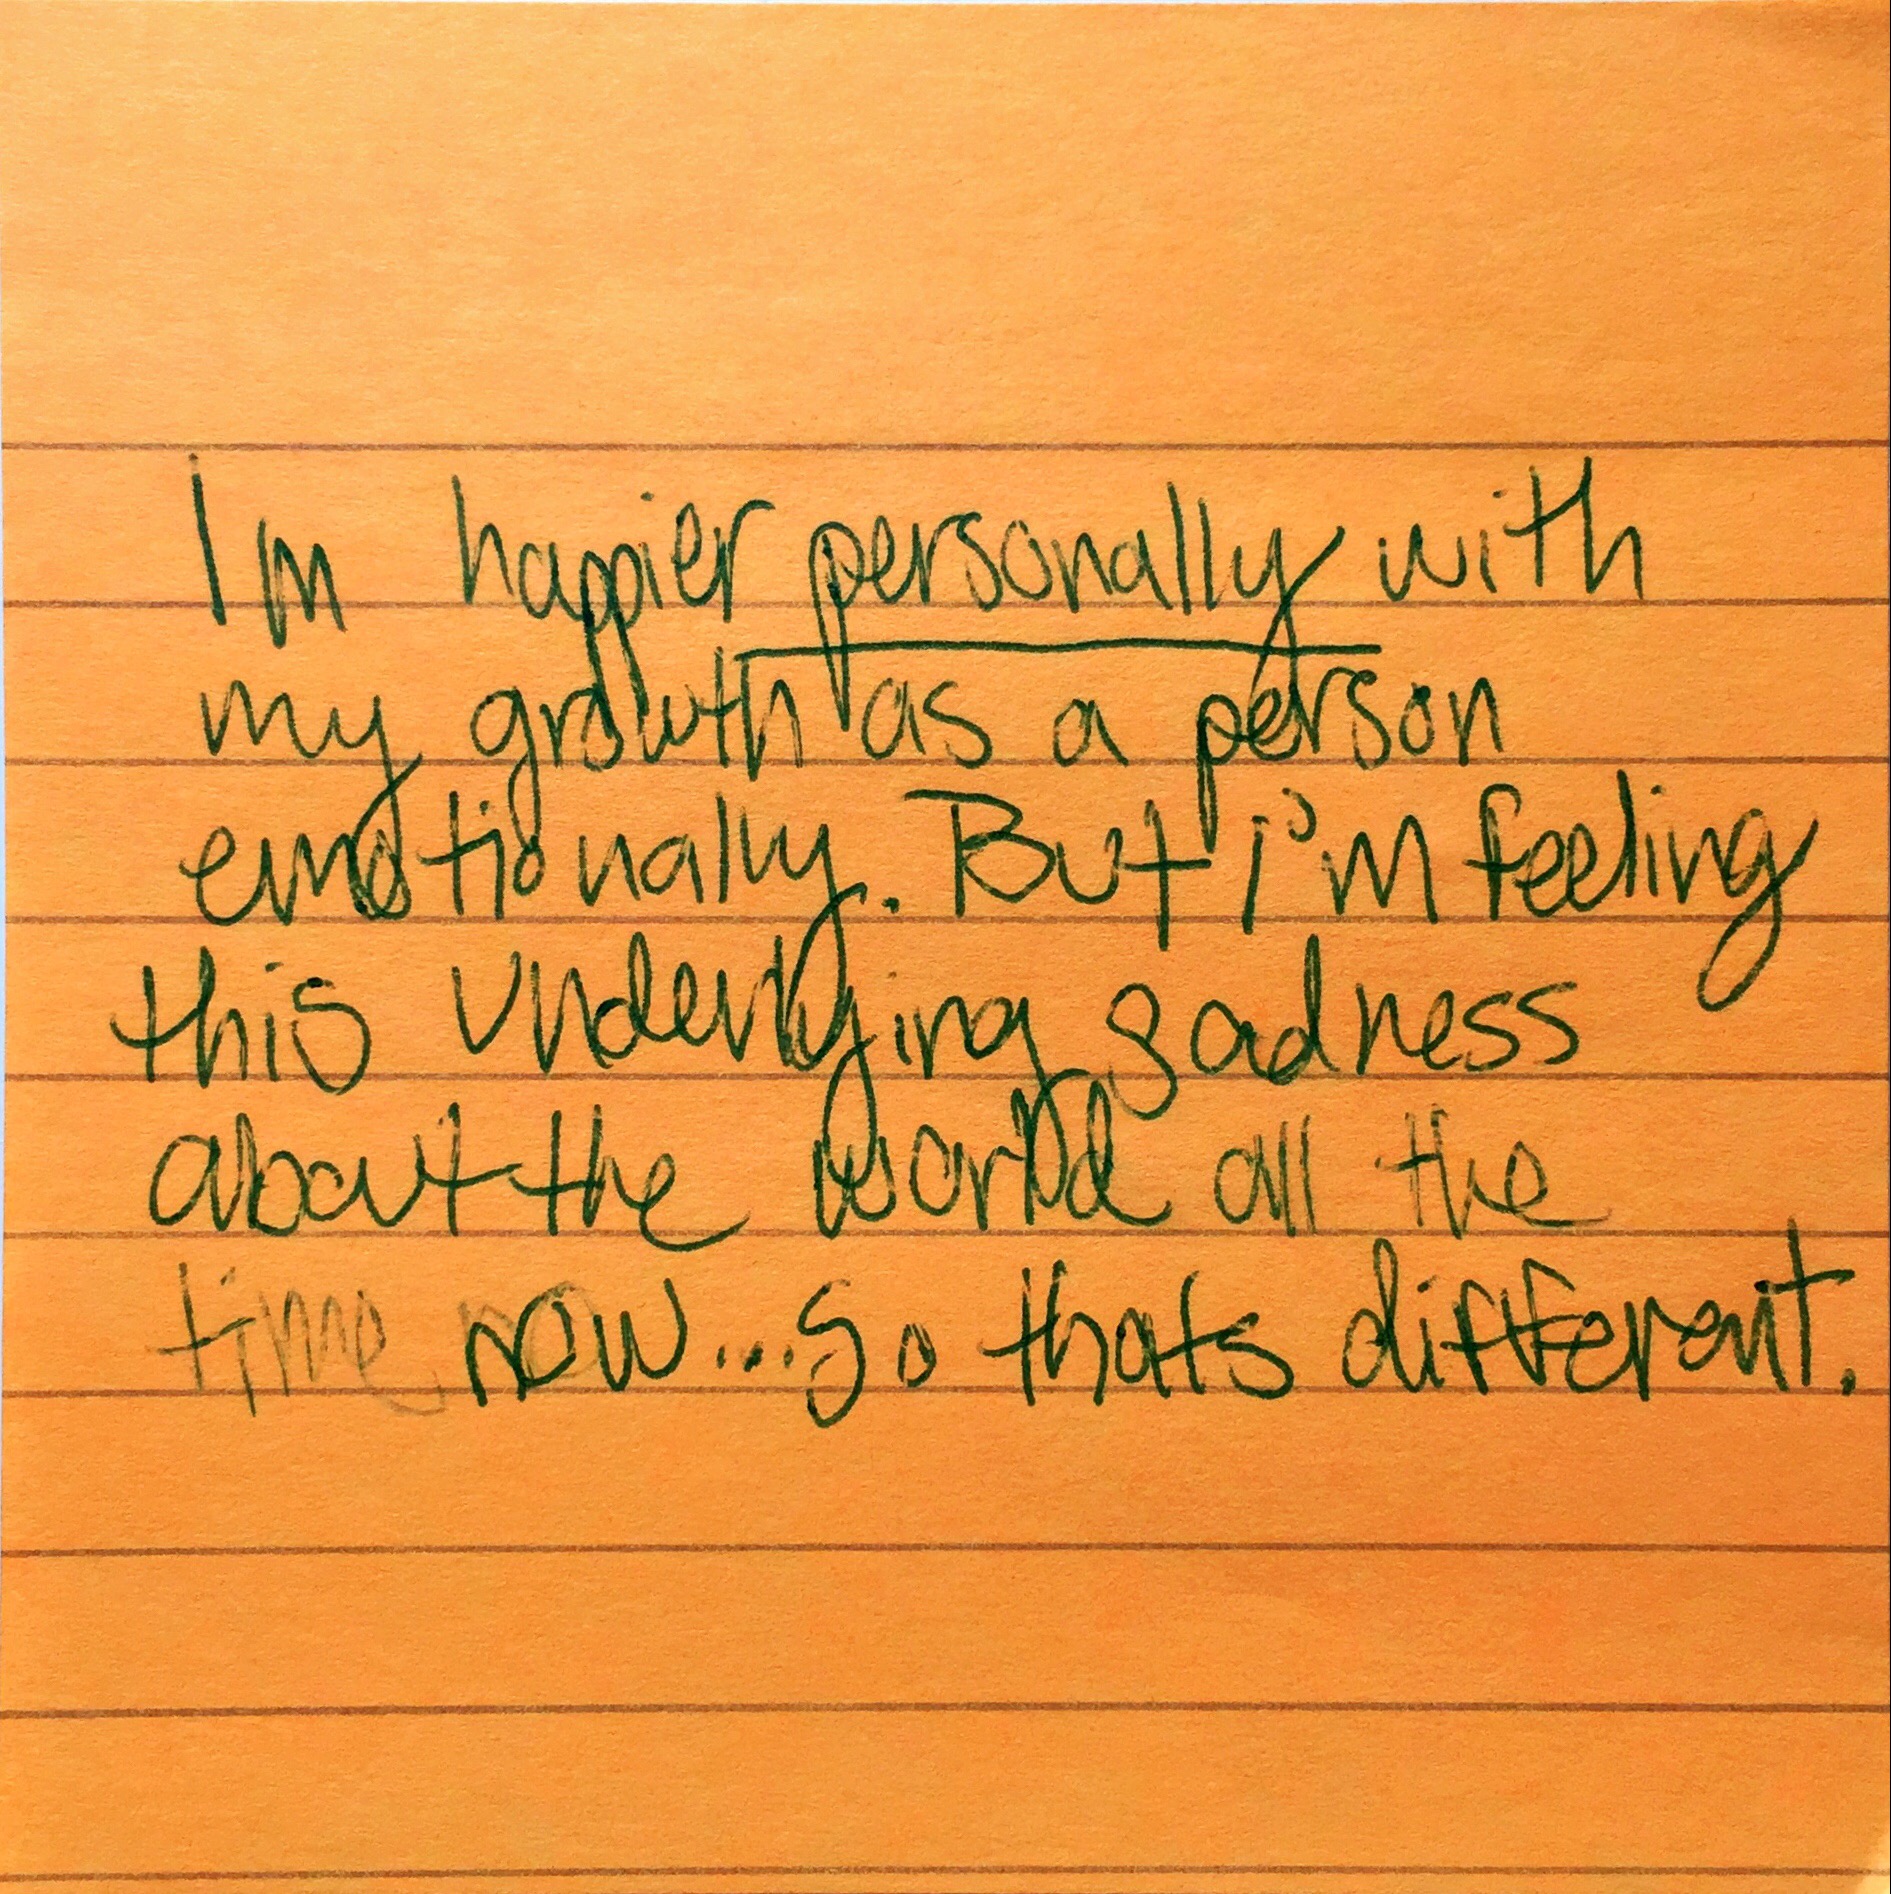 Im happier personally with
my growth as a person
emotionally. But i'm feeling
this underlying sadness
about the world all the
time now...So thats different.